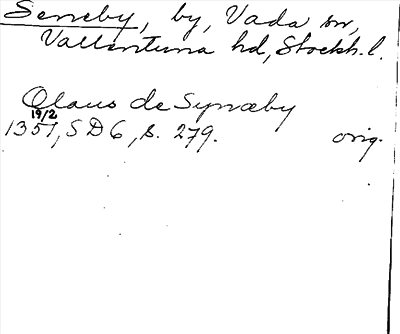 Seneby, by, Vada sn,
Vallentuna hd, Stockh. l.
Olaus de Synæby
19/2
1351, SD6, s. 279. orig.